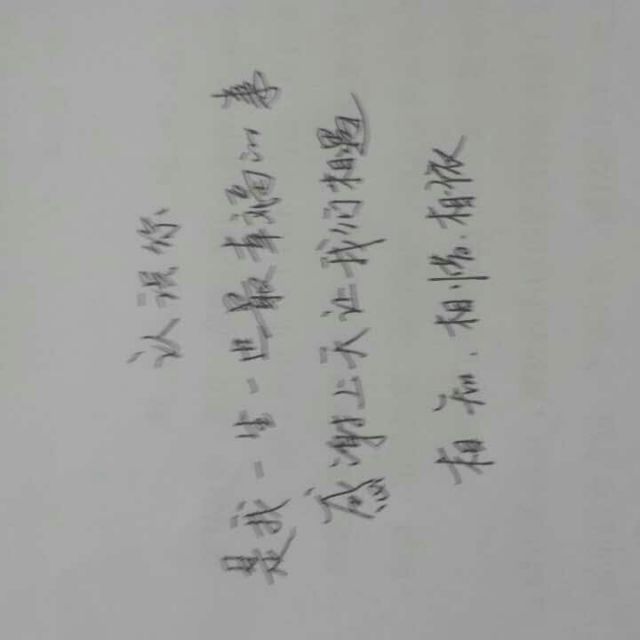 认识你、
是我一生一世最幸福的事
感谢上天让我们相遇
相知、相惜、相依